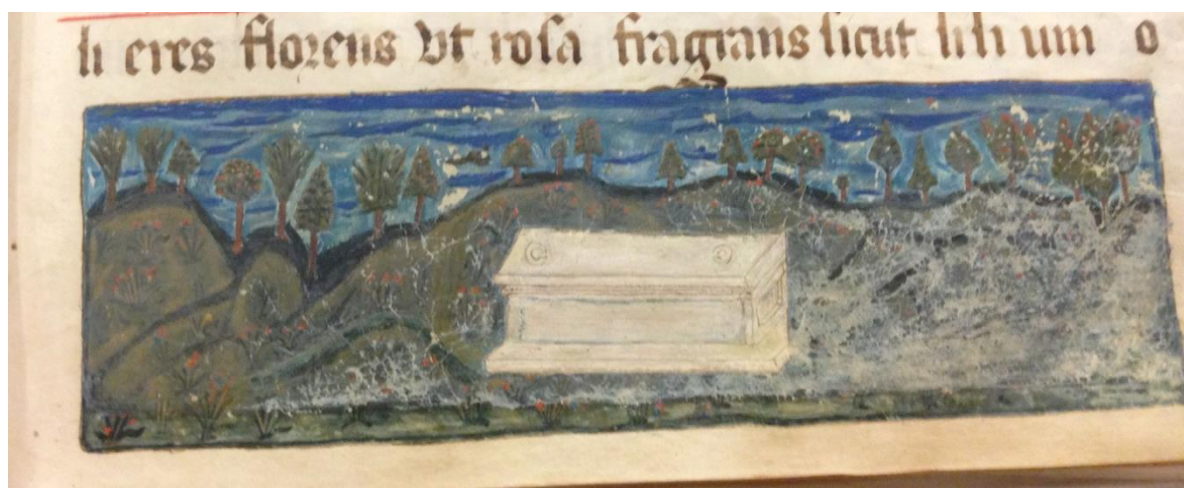 li eres florens vt rosa fragrans sicut lili um o